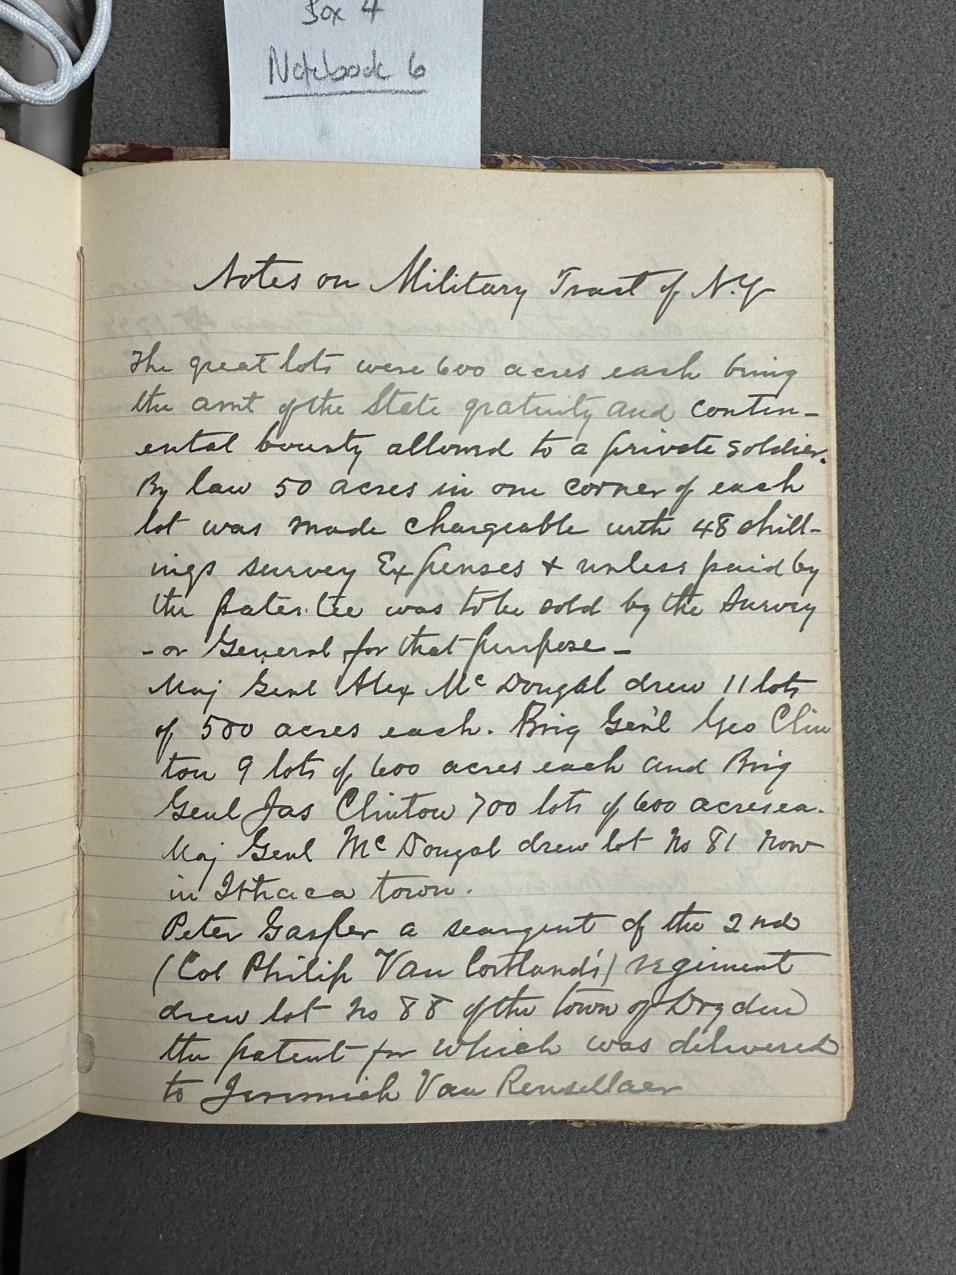 Box 4
Notebook 6
Notes on Military Tract of N.Y
The great lots were 600 acres each being
the amt of the State gratuity and contin-
ental bounty allowed to a private soldier.
By law 50 acres in one corner of each
lot was made chargeable with 48 shill-
ings survey Expenses & unless paid by
the patentee was to be sold by the Survey
-or General for that purpose -
Maj Genl Alex Mc Dougal drew 11 lots
of 500 acres each. Brig Gen'l Geo Clin
ton 9 lots of 600 acres each and Brig
Genl Jas Clinton 700 lots of 600 acres ea.
Maj Genl Mc Dougal drew lot No 81 now
in Ithaca town.
Peter Gasper a seargent of the 2nd
(Col Philip Van Cortland's) regiment
drew lot No 88 of the town of Dryden
the patent for which was delivered
to Jeremiah Van Rensellaer